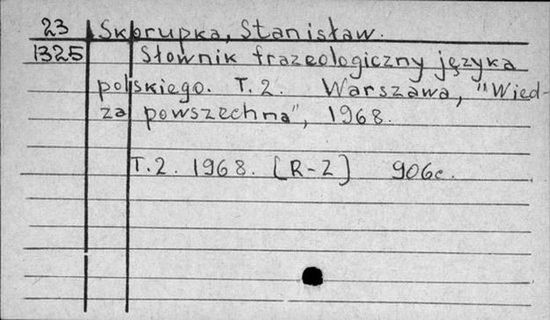 23 Skorupka, Stanisław.
1325 Słownik frazeologiczny języka
polskiego. T.2. Warszawa, "Wied-
za powszechna", 1968.
T.2. 1968. [R-Z] 906c.